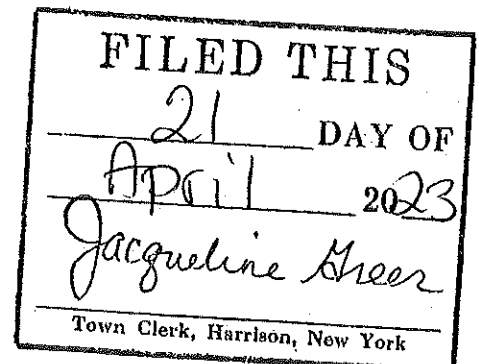 FILED THIS
21 DAY OF
April 2023
Jacqueline Greer
Town Clerk, Harrison, New York